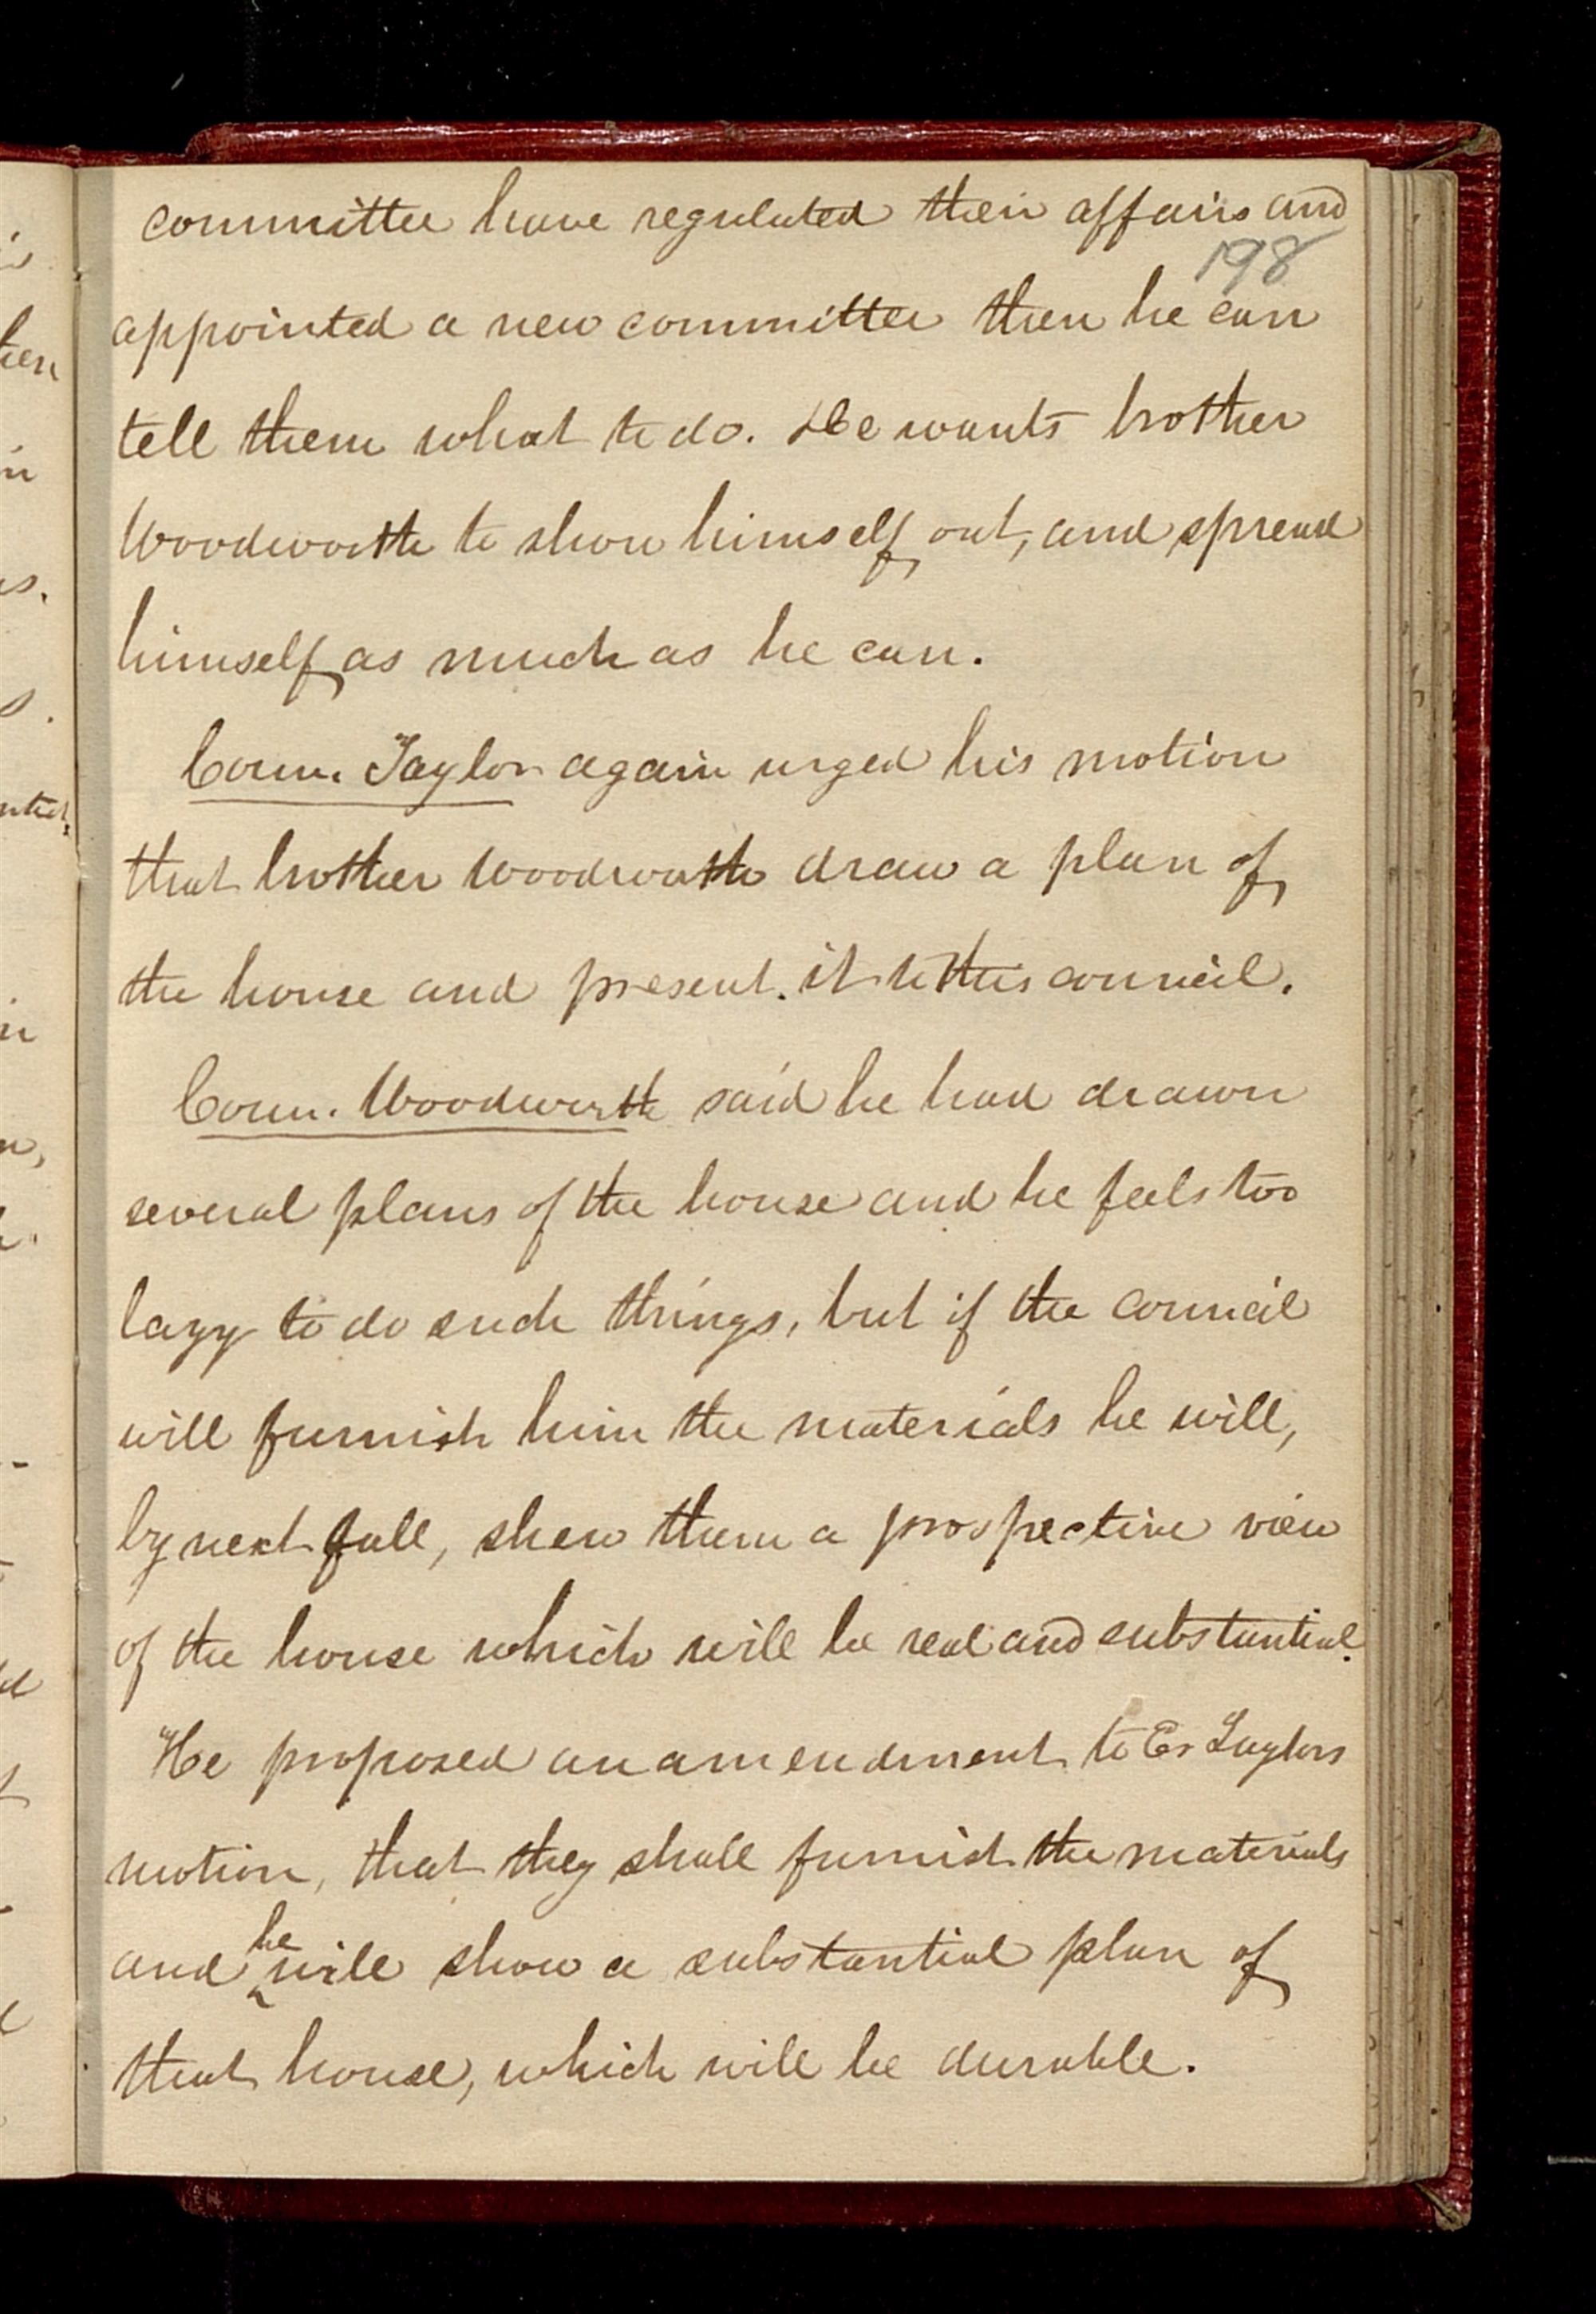 committee have regulated their affairs and
198
appointed a new committee then he can
tell them what to do. He wants brother
Woodworth to show himself out, and spread
himself as much as he can.
Coun. Taylor again urged his motion
that brother Woodworth draw a plan of
the house and present it to this council.
Coun. Woodworth said he had drawn
several plans of the house and he feels too
lazy to do such things, but if the council
will furnish him the materials he will,
by next fall, shew them a prospective view
of the house which will be real and substantial.
He proposed an amendment to Er Taylors
motion, that they shall furnish the materials
and he will show a substantial plan of
that house, which will be durable.